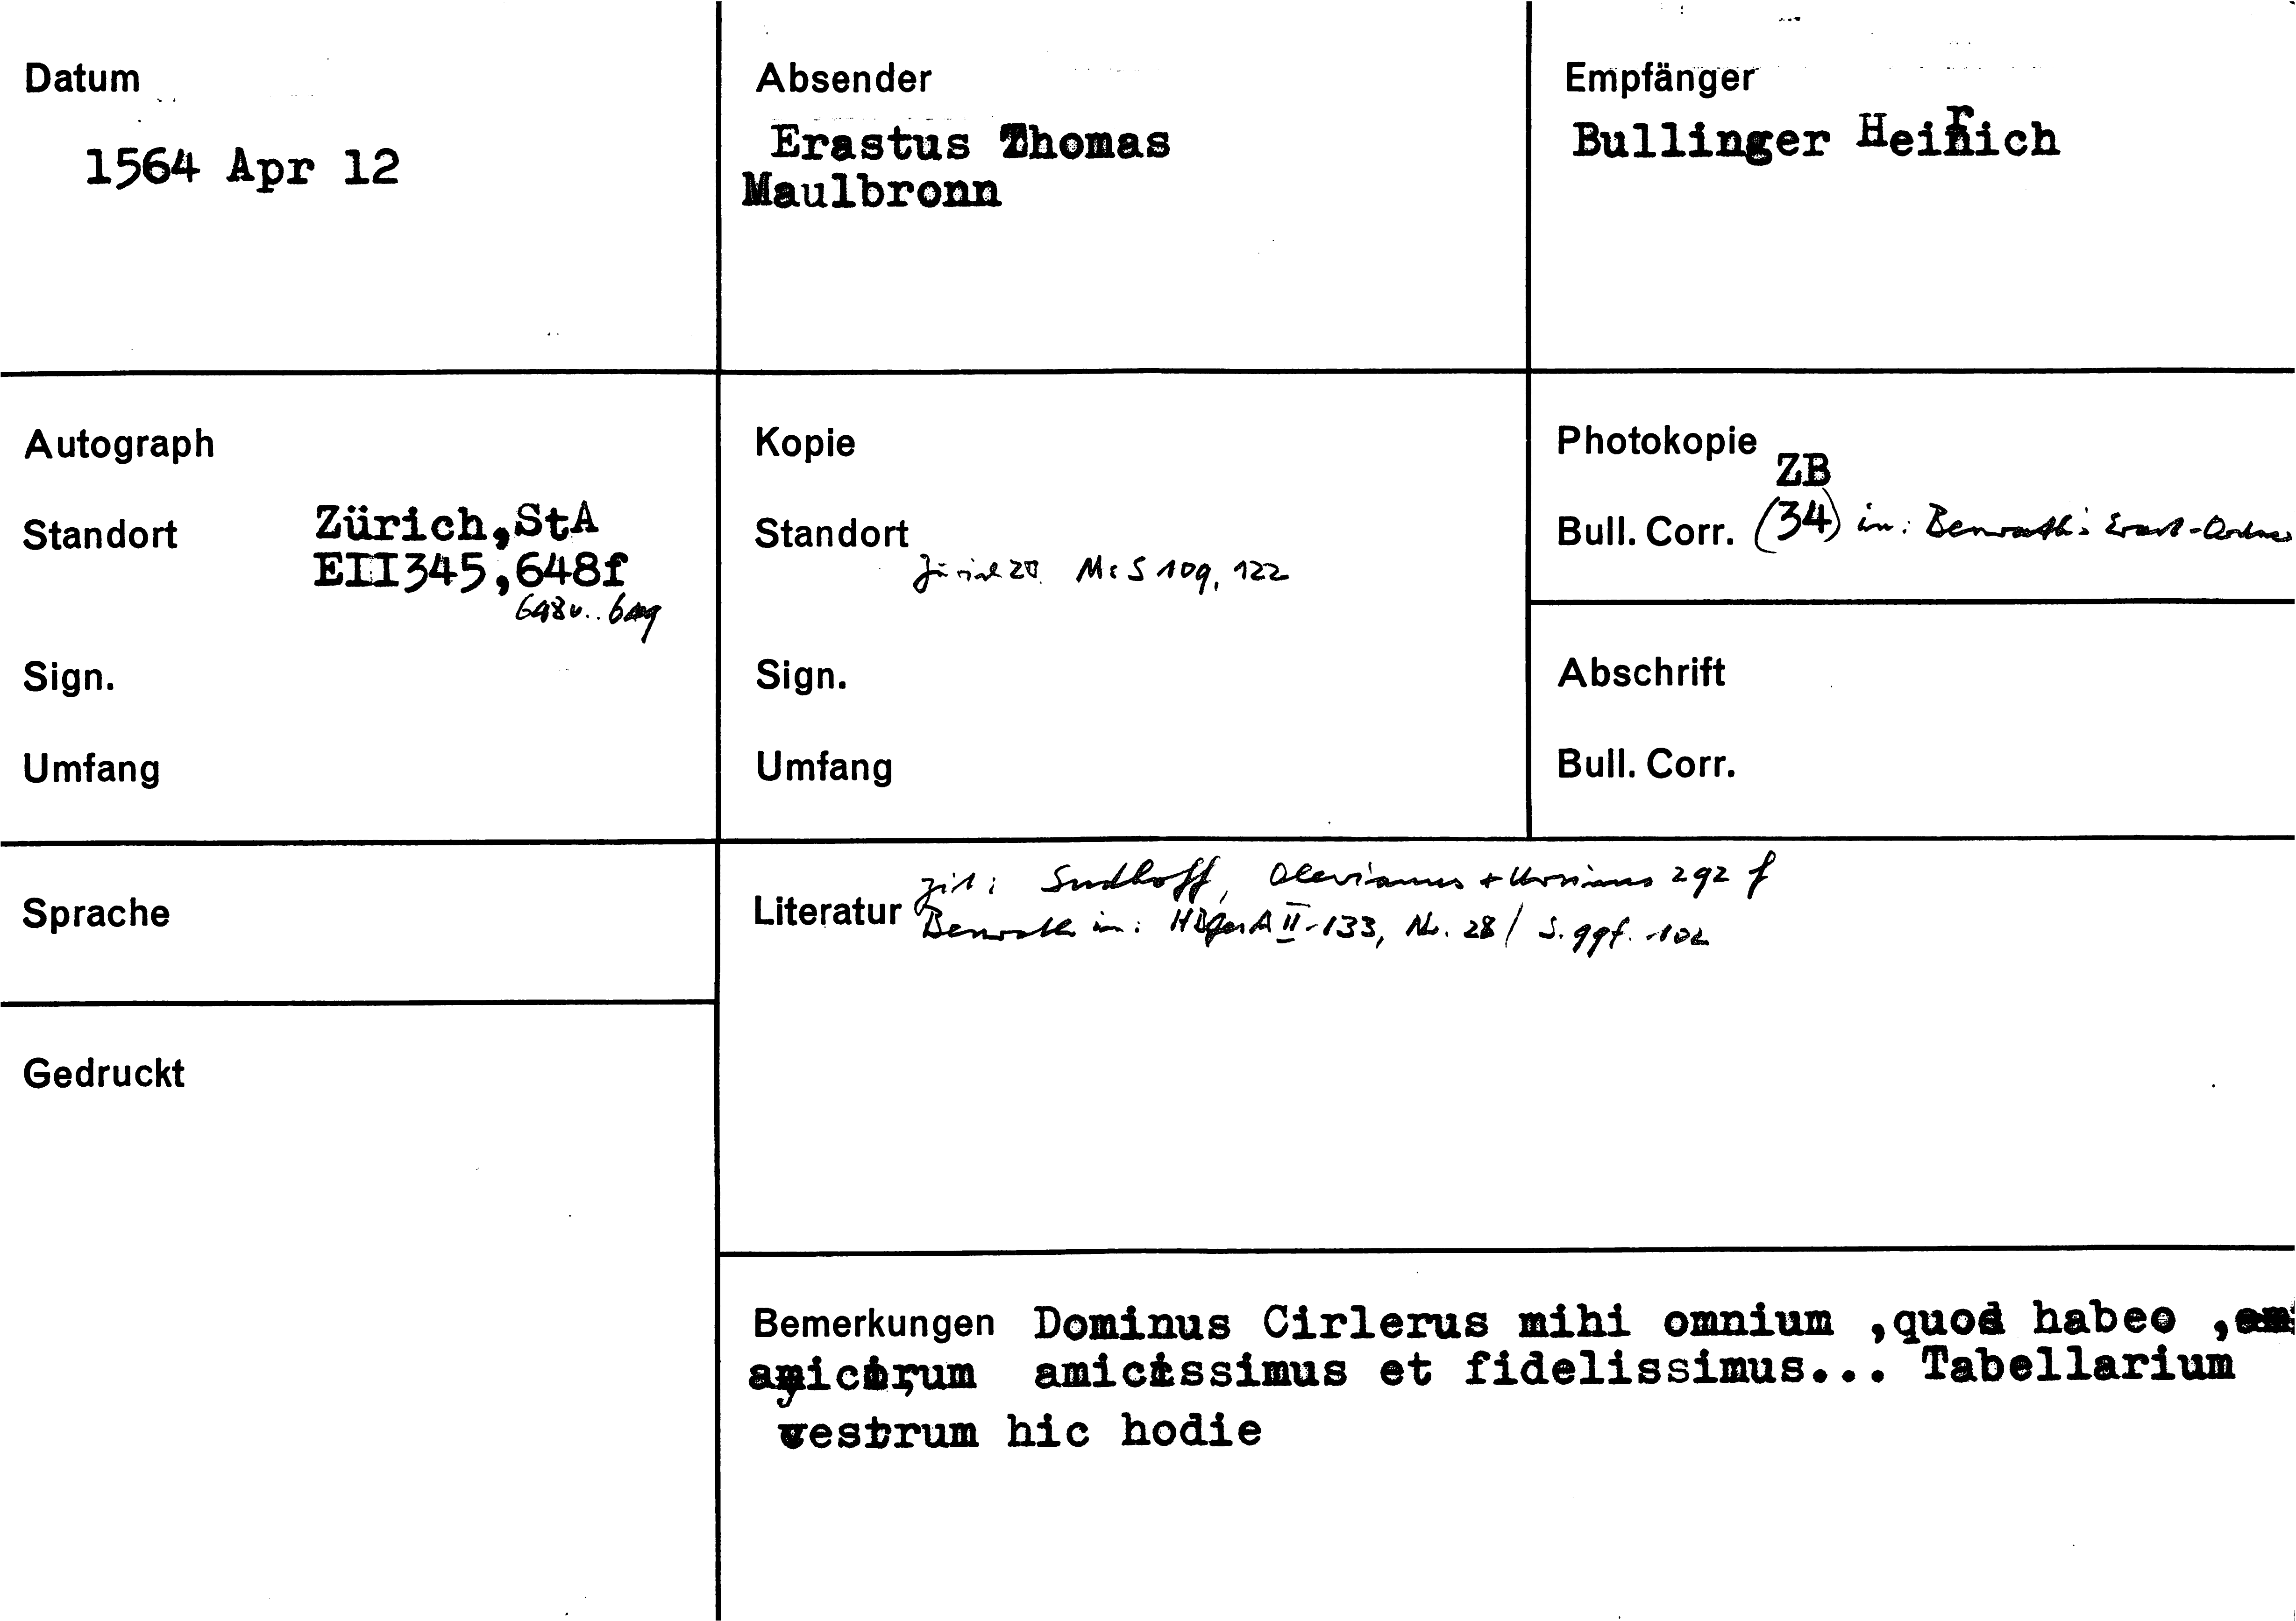 Datum
1564 Apr 12
Absender
Erastus Thomas
Maulbronn
Empfänger
Bullinger Heinrich
Autograph
Standort Zürich,StA
EII345,648f
648v..649
Sign.
Umfang
Kopie
Standort
Zürich ZB Ms S 109, 122
Sign.
Umfang
Photokopie
ZB
Bull. Corr. (34) in: Benrath's Erast-Ordner
Abschrift
Bull. Corr.
Sprache
Literatur
zit: Sudhoff, Olevianus + Ursinus 292 f
Benrath in: II 133, Nr. 28 / S. 99f. 102
Gedruckt
Bemerkungen Dominus Cirlerus mihi omnium ,quos habeo ,
amicorum amicissimus et fidelissimus... Tabellarium
vestrum hic hodie